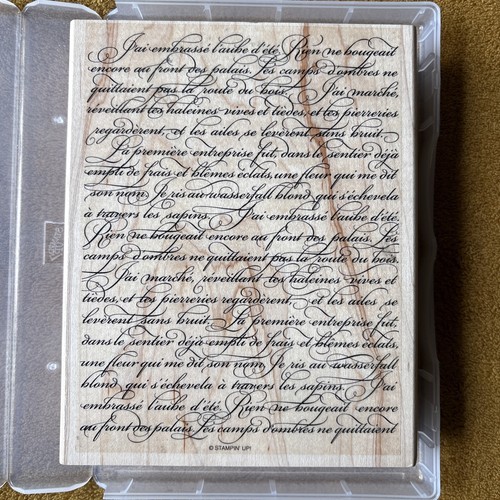 J'ai embrassé l'aube d'été. Rien ne bougeait
encore au front des palais. Les camps d'ombres ne
quittaient pas la route du bois. J'ai marché,
réveillant les haleines vives et tièdes, et les pierreries
regardèrent, et les ailes se levèrent sans bruit.
La première entreprise fut, dans le sentier déjà
empli de frais et blêmes éclats, une fleur qui me dit
son nom. Je ris au wasserfall blond qui s'échevela
à travers les sapins. J'ai embrassé l'aube d'été.
Rien ne bougeait encore au front des palais. Les
camps d'ombres ne quittaient pas la route du bois.
J'ai marché, réveillant les haleines vives et
tièdes, et les pierreries regardèrent, et les ailes se
levèrent sans bruit. La première entreprise fut,
dans le sentier déjà empli de frais et blêmes éclats,
une fleur qui me dit son nom. Je ris au wasserfall
blond qui s'échevela à travers les sapins. J'ai
embrassé l'aube d'été. Rien ne bougeait encore
au front des palais. Les camps d'ombres ne quittaient
© STAMPIN' UP!